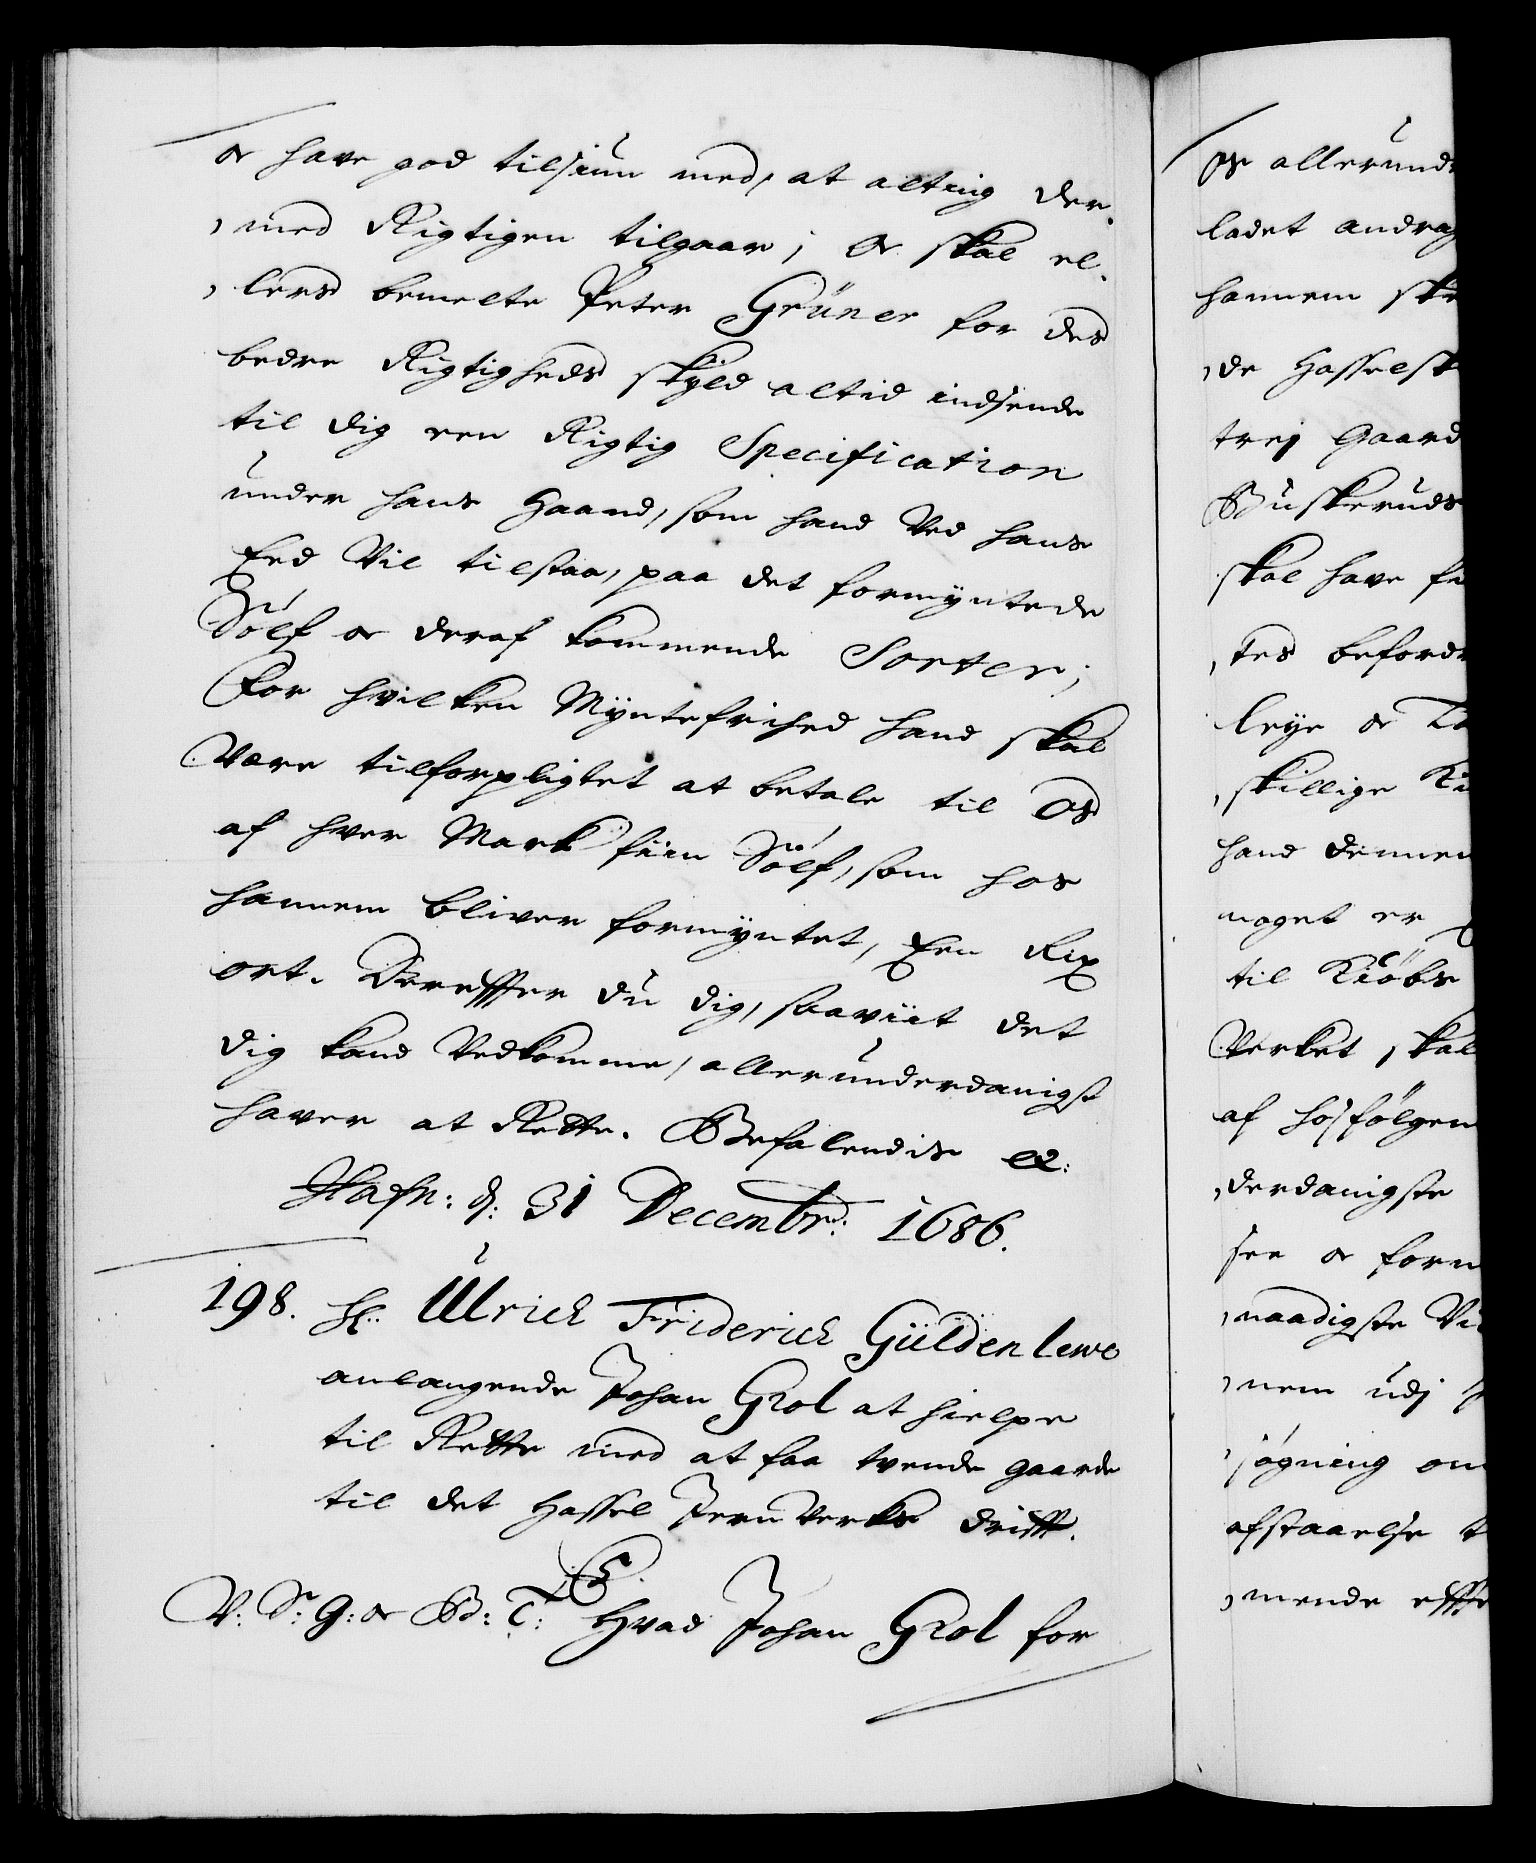 oc have god tilsiun med, at alting der,
,med Rigtigen tilgaar; oc skal el,
,lers bemelte Peter Grüner for des
bedre Rigtigheds skyld altid indsende
til dig een Rigtig Specification
under hans Haand, som hand Ved hans
Eed Vil tilstaa, paa det formyntede
Sölf oc deraf kommende Sorter;
For hvilken Myntefrihed hand skal
Være tilforpligtet at betale til Os
af hver Mark fiin Sölf, som hos
hannem bliver formyntet, Een Rix
ort. Dereffter du dig, saaviit det
dig kand Vedkomme, allerunderdanigst
haver at Rette. Befalendis etc:
Hafn: d: 31 Decembr: 1686.
198. Hr: Ulrich Friderich Güldenlewe
anlangende Johan Grol at hielpe
til Rette med at faa tvende gaarde
til det Hassel Jern Verks drifft.
C5.
V: Sr: G: oc B: T: Hvad Johan Grol for
os allerund
ladet andrag
hannem ske
,de Hasselsk
trej Gaard
Buskeruds
skal have fa
,tes befordr
leye oc
,skillige
hand dennem
noget er
til Kiöbs
Verket skal
af hosfölgen
,derdanigste
see oc form
,naadigste Vi
,nem udj
,sögning om
afstaaelse t
,mende effte